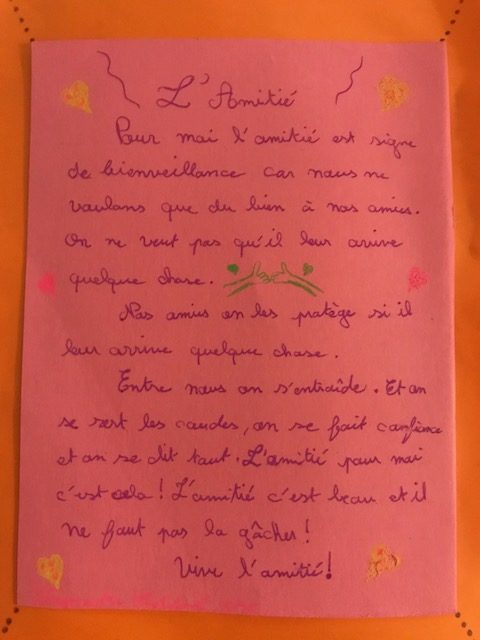 L'Amitié
Pour moi l'amitié est signe
de bienveillance car nous ne
voulons que du bien à nos amies.
On ne veut pas qu'il leur arrive
quelque chose.
Nos amies on les protège si il
leur arrive quelque chose.
Entre nous on s'entraîde. Et on
se sert les coudes, on se fait confience
et on se dit tout. L'amitié pour moi
c'est cela! L'amitié c'est beau et il
ne faut pas la gâcher!
Vive l'amitié!